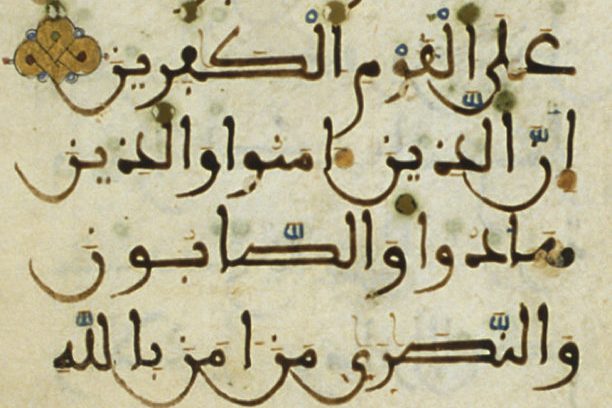 على القوم الكفرين
ان الذين امنوا والذين
هادوا والصابون
والنصرى من امن بالله